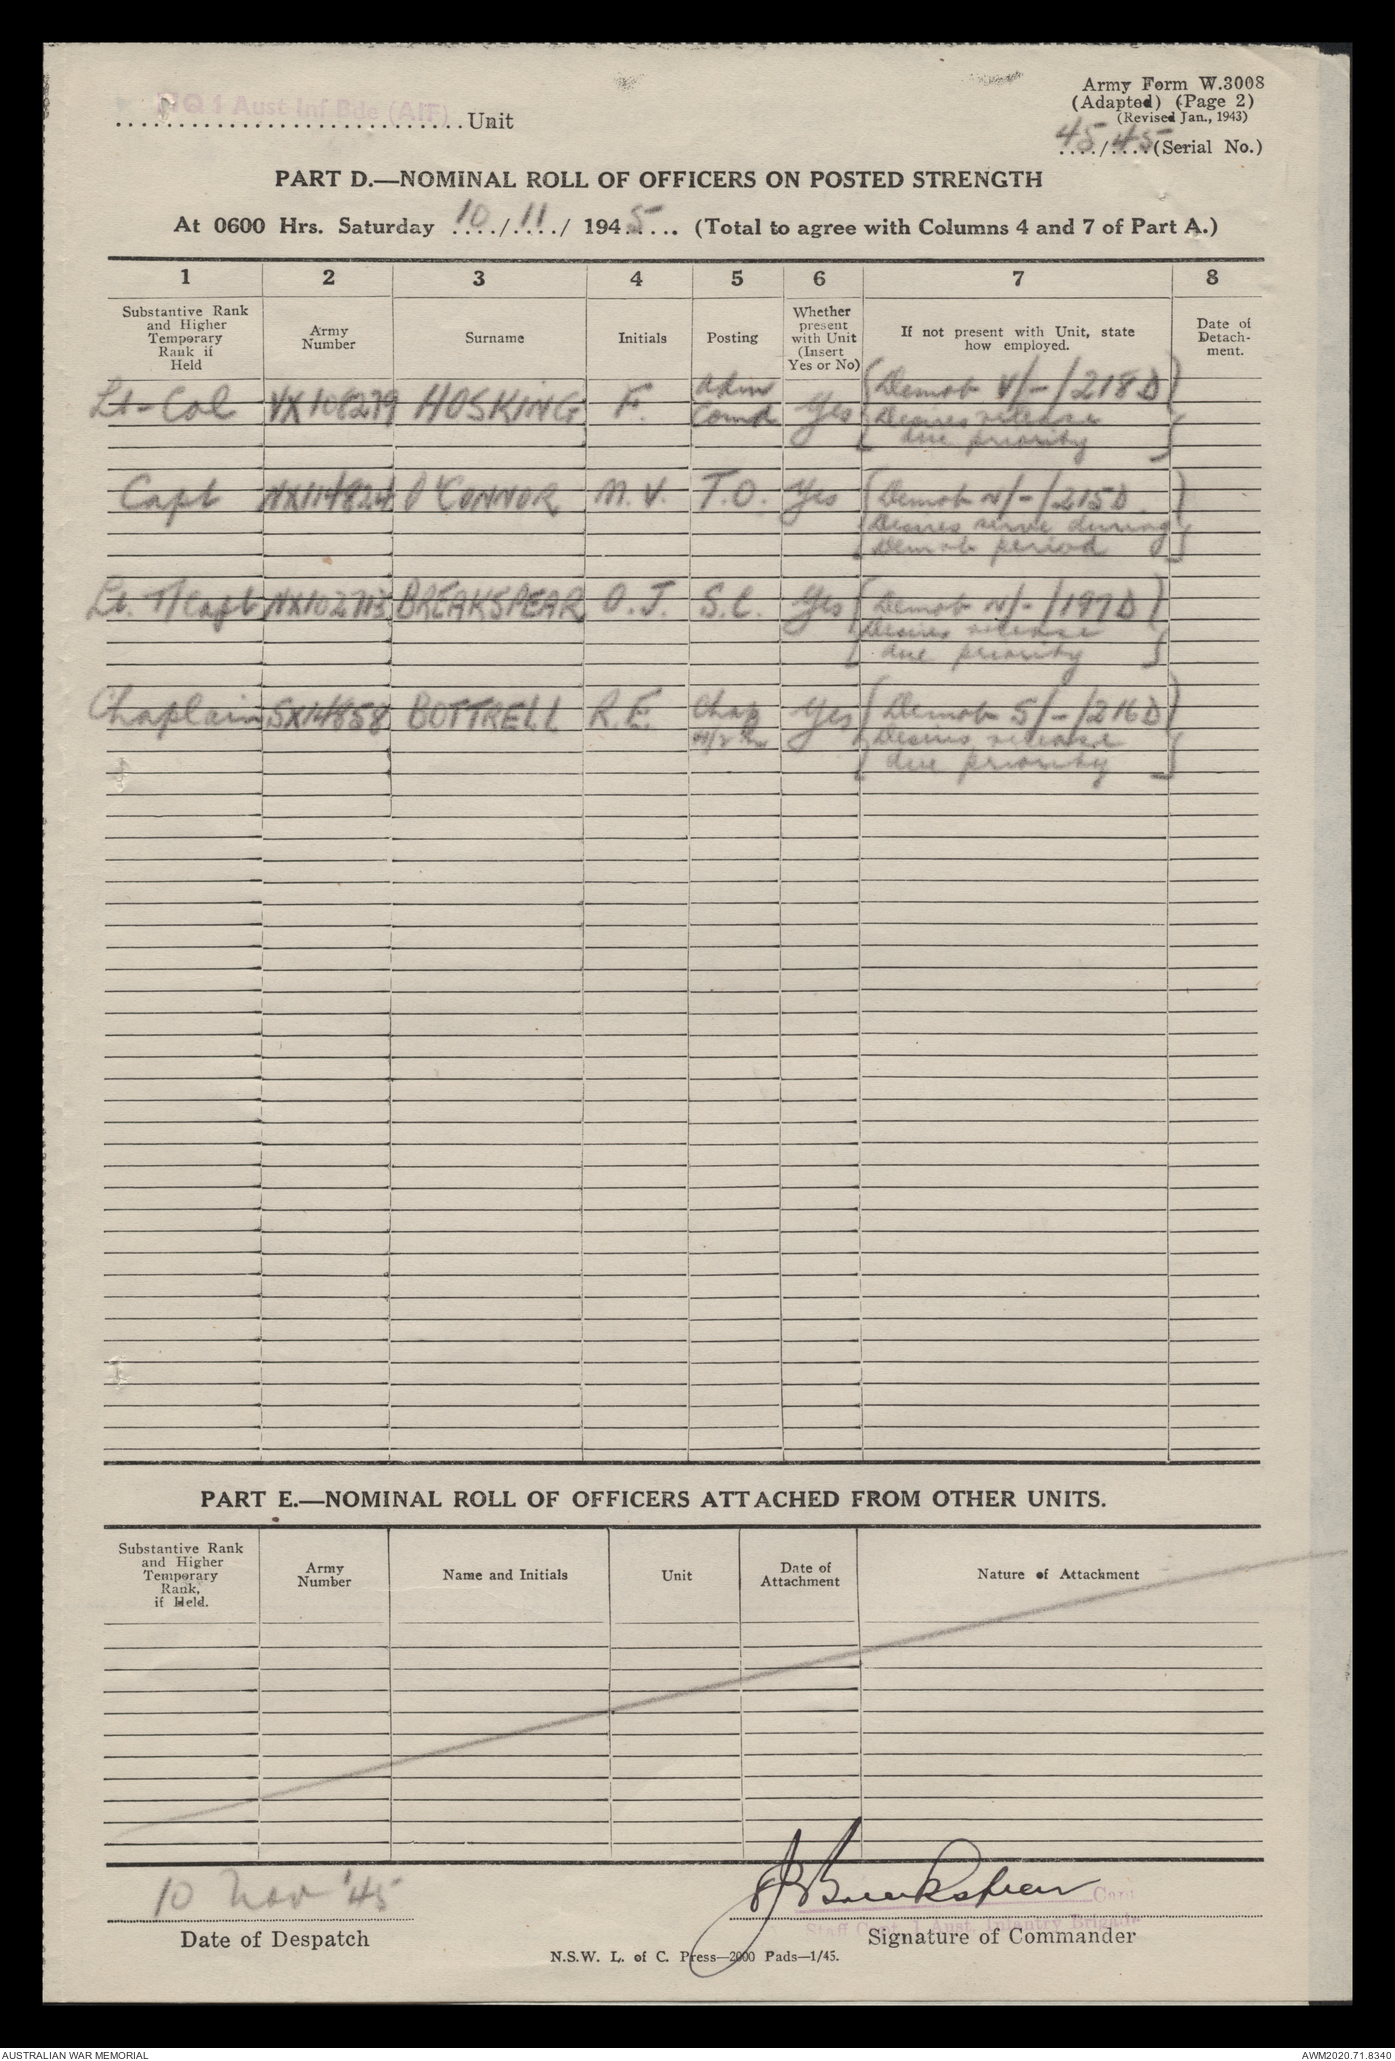 HQ 1 Aust Inf Bde (AIF)
..............................Unit
Army Form W.3008
(Adapted) (Page 2)
(Revised Jan., 1943)
45/45 (Serial No.)
PART D.—NOMINAL ROLL OF OFFICERS ON POSTED STRENGTH
At 0600 Hrs. Saturday 10/11/1945.... (Total to agree with Columns 4 and 7 of Part A.)
1 2 3 4 5 6 7 8
Substantive Rank and Higher Temporary Rank if Held
Army Number
Surname
Initials
Posting
Whether present with Unit (Insert Yes or No)
If not present with Unit, state how employed.
Date of Detach-ment.
Lt-Col VX108279 HOSKING F. Adm Comd Yes (Demob V/-/218D)
[Desires release
due priority]
Capt NX114824 O'CONNOR M.V. T.O. Yes (Demob N/-/215D.)
[Desires serve during
Demob period]
Lt. T/Capt NX102713 BREAKSPEAR O.J. S.C. Yes (Demob N/-/197D)
[Desires release
due priority]
Chaplain SX14858 BOTTRELL R.E. Chap Yes (Demob S/-/216D)
[Desires release
due priority]
PART E.—NOMINAL ROLL OF OFFICERS ATTACHED FROM OTHER UNITS.
Substantive Rank and Higher Temporary Rank, if Held.
Army Number
Name and Initials
Unit
Date of Attachment
Nature of Attachment
10 Nov '45
OJ Breakspear Capt
Staff Capt. 1 Aust. Infantry Brigade
Date of Despatch
Signature of Commander
N.S.W. L. of C. Press—2000 Pads—1/45.
AUSTRALIAN WAR MEMORIAL
AWM2020.71.8340